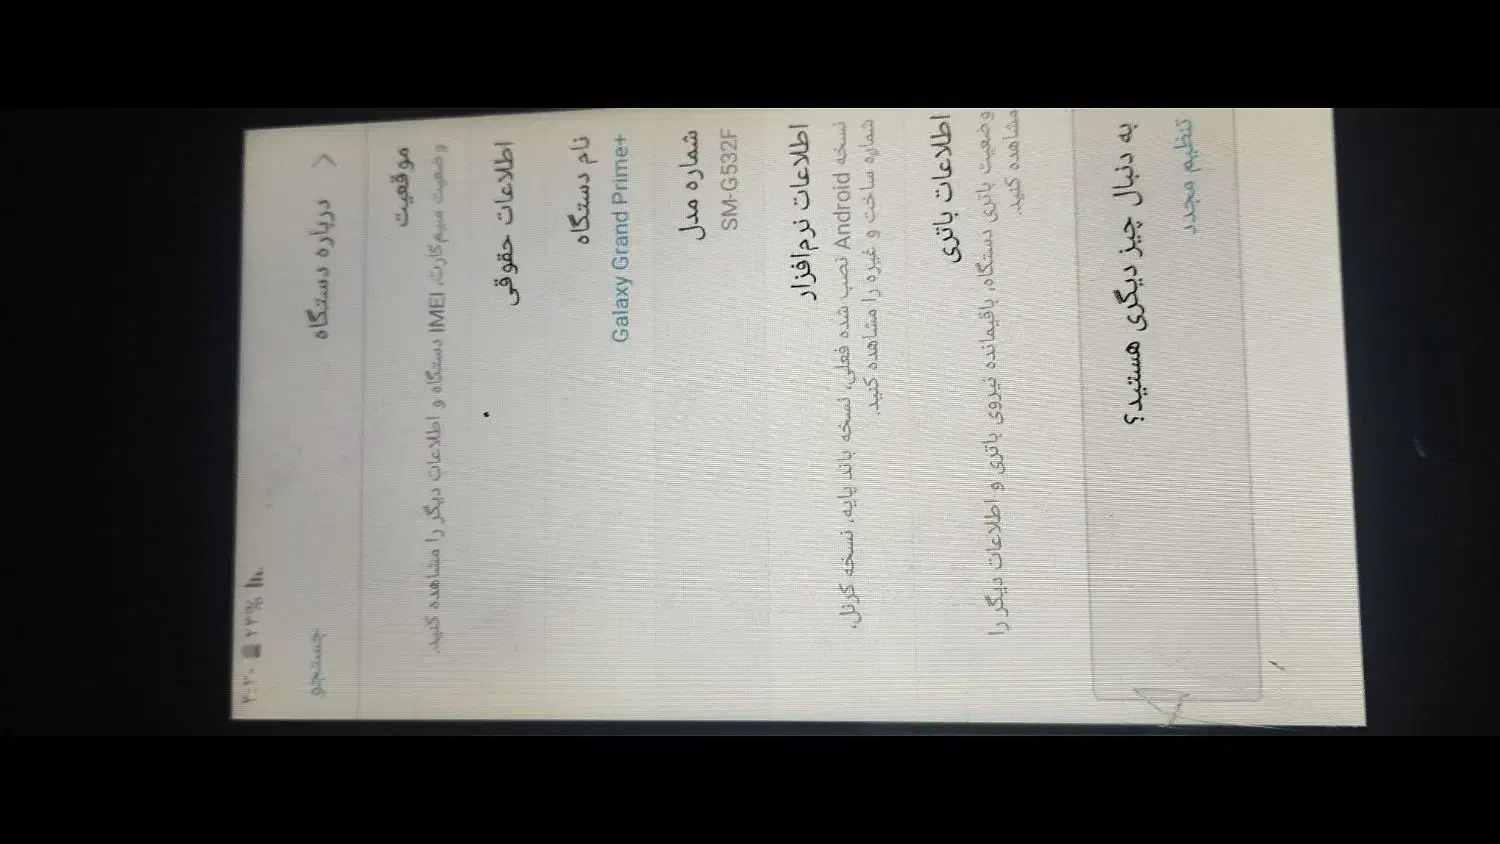 ۲:۲۰ ۲۴%
درباره دستگاه
جستجو
موقعیت
وضعیت سیم‌کارت، IMEI دستگاه و اطلاعات دیگر را مشاهده کنید.
اطلاعات حقوقی
نام دستگاه
Galaxy Grand Prime+
شماره مدل
SM-G532F
اطلاعات نرم‌افزار
نسخه Android نصب شده فعلی، نسخه باند پایه، نسخه کرنل،
شماره ساخت و غیره را مشاهده کنید.
اطلاعات باتری
وضعیت باتری دستگاه، باقیمانده نیروی باتری و اطلاعات دیگر را
مشاهده کنید.
به دنبال چیز دیگری هستید؟
تنظیم مجدد